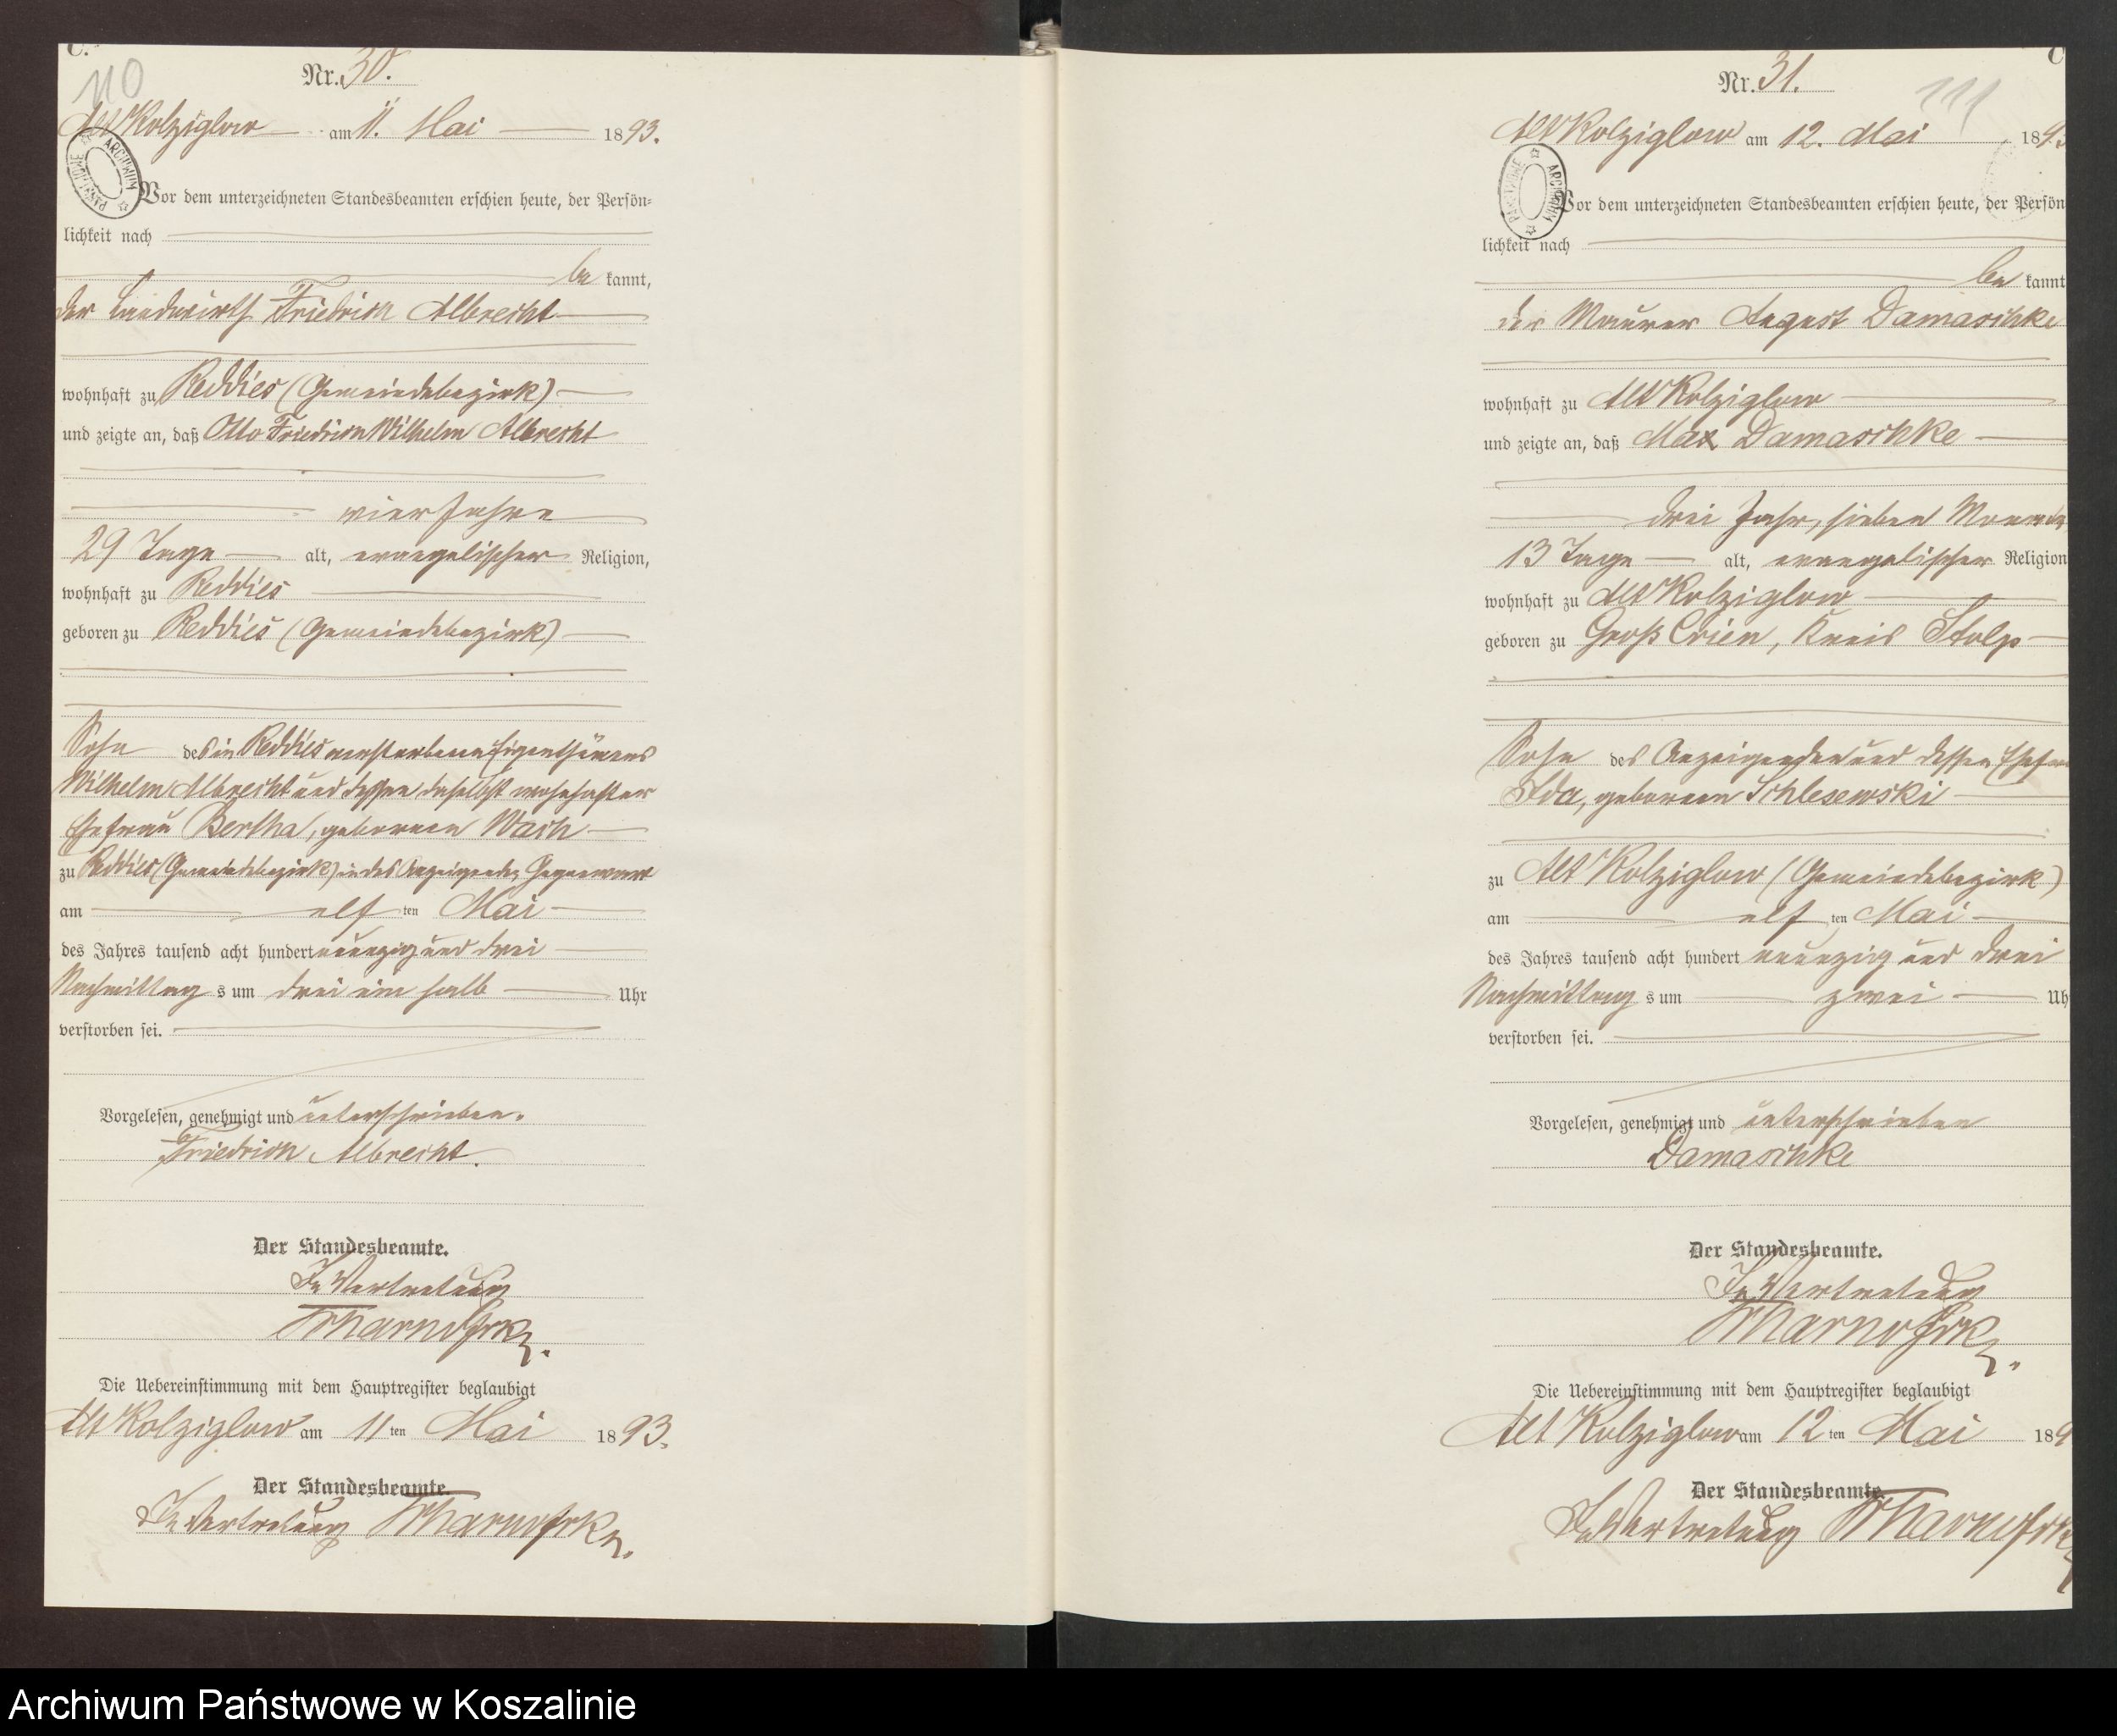 C.
110
Nr. 30.
Alt Kolziglow am 11. Mai 1893.
ARCHIWUM PAŃSTWOWE
Vor dem unterzeichneten Standesbeamten erschien heute, der Persön-
lichkeit nach
be kannt,
der Landwirth Friedrich Albrecht
wohnhaft zu Reddies (Gemeindebezirk)
und zeigte an, daß Otto Friedrich Wilhelm Albrecht
vier Jahre
29 Tage alt, evangelischer Religion,
wohnhaft zu Reddies
geboren zu Reddies (Gemeindebezirk)
Sohn des in Reddies verstorbenen Eigenthümers
Wilhelm Albrecht und dessen daselbst wohnhafter
Ehefrau Bertha, geborenen Wach
zu Reddies (Gemeindebezirk) in des Anzeigenden Gegenwart
am elf ten Mai
des Jahres tausend acht hundert neunzig und drei
Nachmittag s um drei ein halb Uhr
verstorben sei.
Vorgelesen, genehmigt und unterschrieben.
Friedrich Albrecht.
Der Standesbeamte.
In Vertretung
Die Uebereinstimmung mit dem Hauptregister beglaubigt
Alt Kolziglow am 11 ten Mai 1893.
Der Standesbeamte.
In Vertretung
C
111
Nr. 31.
Alt Kolziglow am 12. Mai 1893
ARCHIWUM PAŃSTWOWE
Vor dem unterzeichneten Standesbeamten erschien heute, der Persön
lichkeit nach
be kannt
der Maurer August Damaschke
wohnhaft zu Alt Kolziglow
und zeigte an, daß Max Damaschke
drei Jahr, sieben Monate
13 Tage alt, evangelischer Religion
wohnhaft zu Alt Kolziglow
geboren zu Groß Crien, Kreis Stolp
Sohn des Anzeigenden und dessen Ehefrau
Ida, geborenen Schlesewski
zu Alt Kolziglow (Gemeindebezirk)
am elf ten Mai
des Jahres tausend acht hundert neunzig und drei
Nachmittag s um zwei Uh
verstorben sei.
Vorgelesen, genehmigt und unterschrieben
Damaschke
Der Standesbeamte.
In Vertretung
Die Uebereinstimmung mit dem Hauptregister beglaubigt
Alt Kolziglow am 12 ten Mai 189
Der Standesbeamte.
In Vertretung
Archiwum Państwowe w Koszalinie